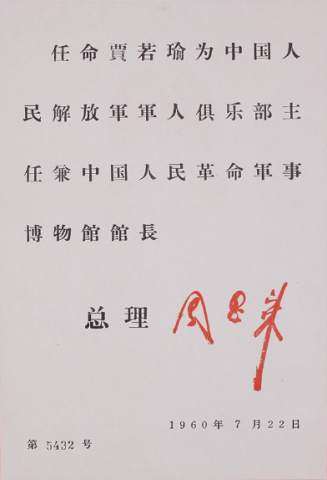 任命賈若瑜为中国人
民解放軍軍人俱乐部主
任兼中国人民革命軍事
博物館館長
总理 周恩来
1960年7月22日
第 5432 号